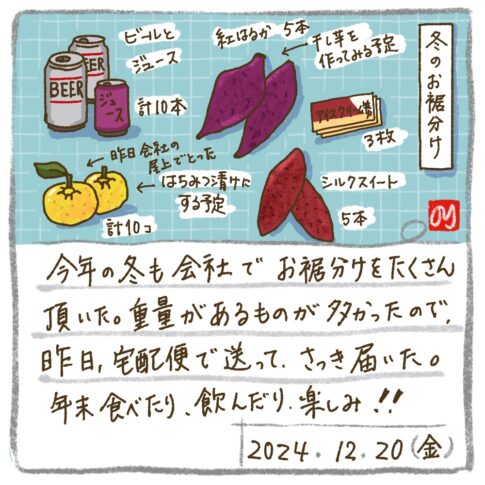 冬のお裾分け
ビールと
ジュース
BEER
BEER
ジュース
計10本
紅はるか 5本
干し芋を
作ってみる予定
アイスクリーム券
3枚
昨日会社の
屋上でとった
はちみつ漬けに
する予定
計10コ
シルクスイート
5本
今年の冬も会社でお裾分けをたくさん
頂いた。重量があるものが多かったので、
昨日、宅配便で送って、さっき届いた。
年末食べたり、飲んだり、楽しみ!!
2024.12.20(金)